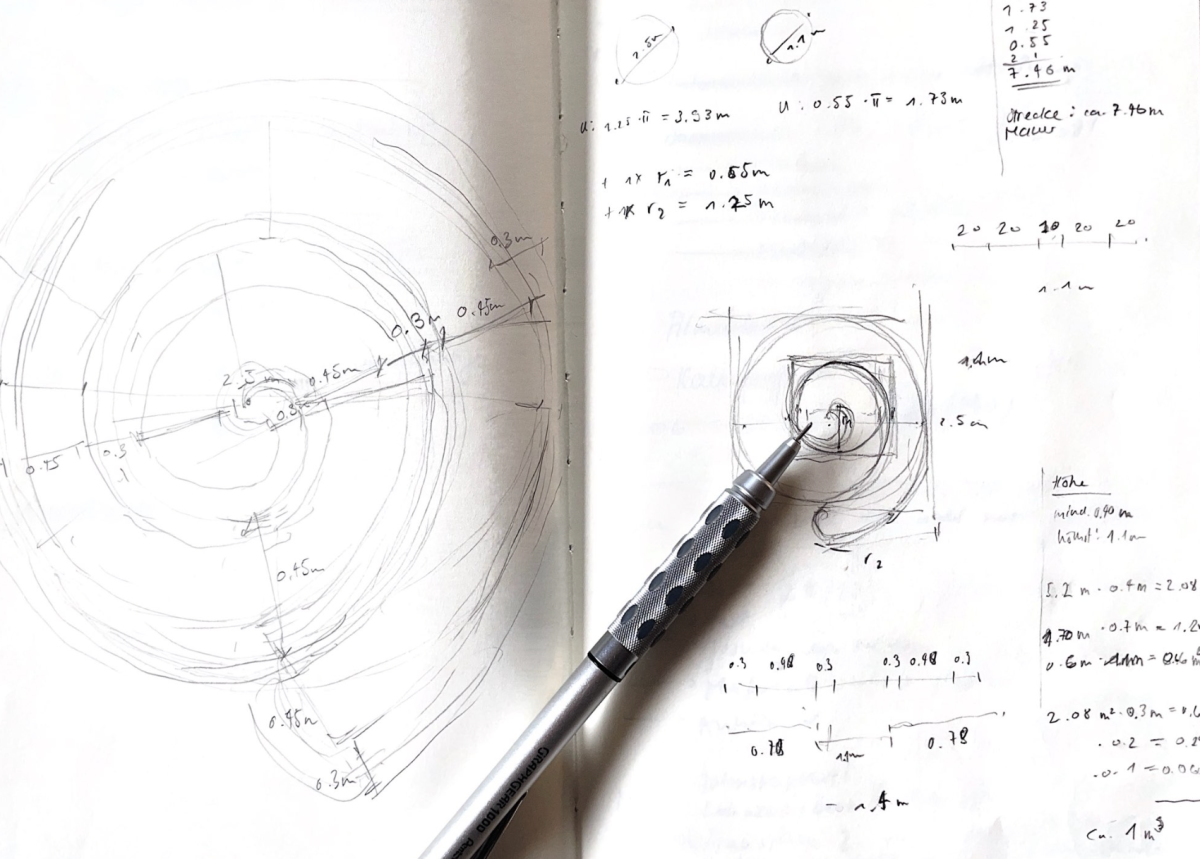 0.3m
0.45m
0.3m
0.45m
0.3
0.45
0.45m
0.45m
0.3m
2.5m
1.1m
U: 1.25 · π = 3.93m
U: 0.55 · π = 1.73m
+ 1x r1 = 0.55m
+ 1x r2 = 1.25m
1.73
1.25
0.55
7.46 m
Strecke: ca. 7.46m
Mauer
20 20 10 20 20
1.1m
2.5m
r2
Höhe
mind. 0.40m
höchst: 1.1m
5.2 m · 0.4m = 2.08
1.70m · 0.7m = 1.2
0.3 0.48 0.3 0.3 0.48 0.3
0.78
0.78
2.08 m² · 0.3m = 0.6
· 0.2 = 0.2
· 0.1 = 0.0
ca. 1 m³
GRAPHGEAR 1000